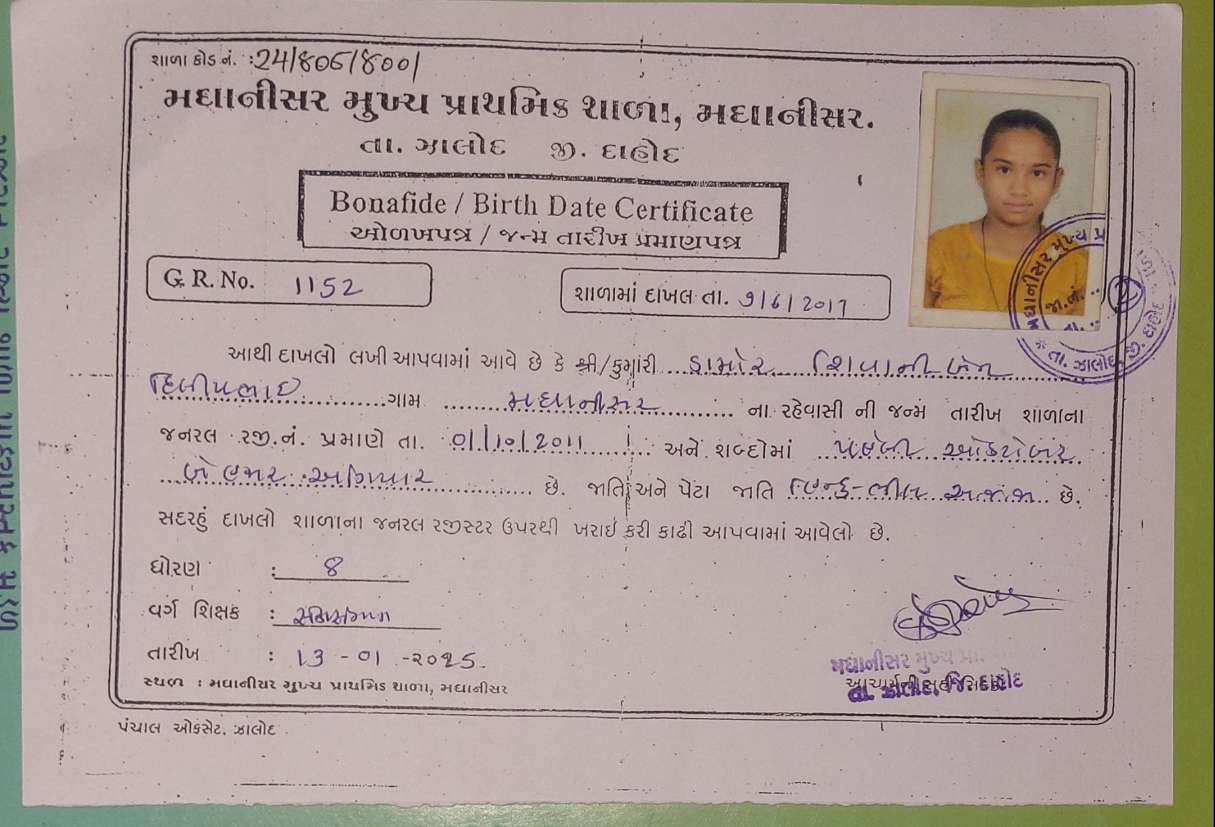 શાળા કોડ નં. : 24/806/8001
મઘાનીસર મુખ્ય પ્રાથમિક શાળા, મઘાનીસર.
તા. ઝાલોદ જી. દાહોદ
Bonafide / Birth Date Certificate
ઓળખપત્ર / જન્મ તારીખ પ્રમાણપત્ર
G. R. No. 1152
શાળામાં દાખલ તા. 9/6/2017
આથી દાખલો લખી આપવામાં આવે છે કે શ્રી/કુમારી ડામોર શિવાનીબેન
દિલીપભાઈ ગામ મઘાનીસર ના રહેવાસી ની જન્મ તારીખ શાળાના
જનરલ રજી.નં. પ્રમાણે તા. 01/10/2011 અને શબ્દોમાં પહેલી ઓક્ટોબર
બે હજાર અગિયાર છે. જાતિ અને પેટા જાતિ હિન્દુ-ભીલ અ.જ.જા. છે.
સદરહું દાખલો શાળાના જનરલ રજીસ્ટર ઉપરથી ખરાઈ કરી કાઢી આપવામાં આવેલો છે.
ધોરણ : 8
વર્ગ શિક્ષક :
તારીખ : 13-01-2025.
સ્થળ : મઘાનીસર મુખ્ય પ્રાથમિક શાળા, મઘાનીસર
મઘાનીસર મુખ્ય પ્રા
તા. ઝાલોદ, જિ. દાહોદ
પંચાલ ઓફસેટ, ઝાલોદ